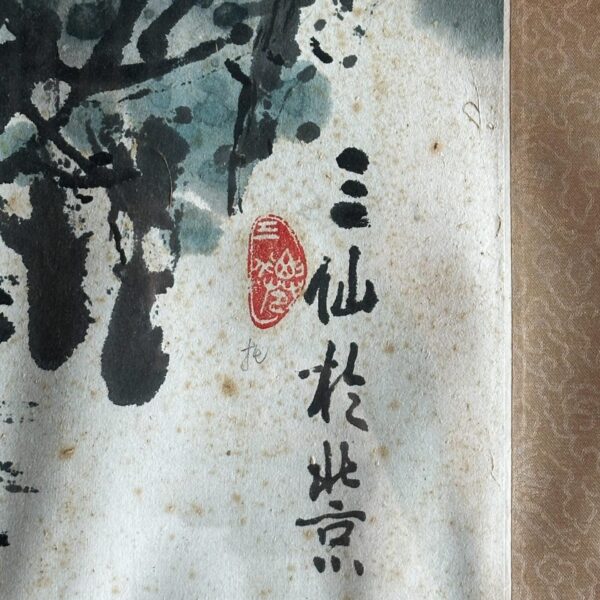 三仙於北京
三仙